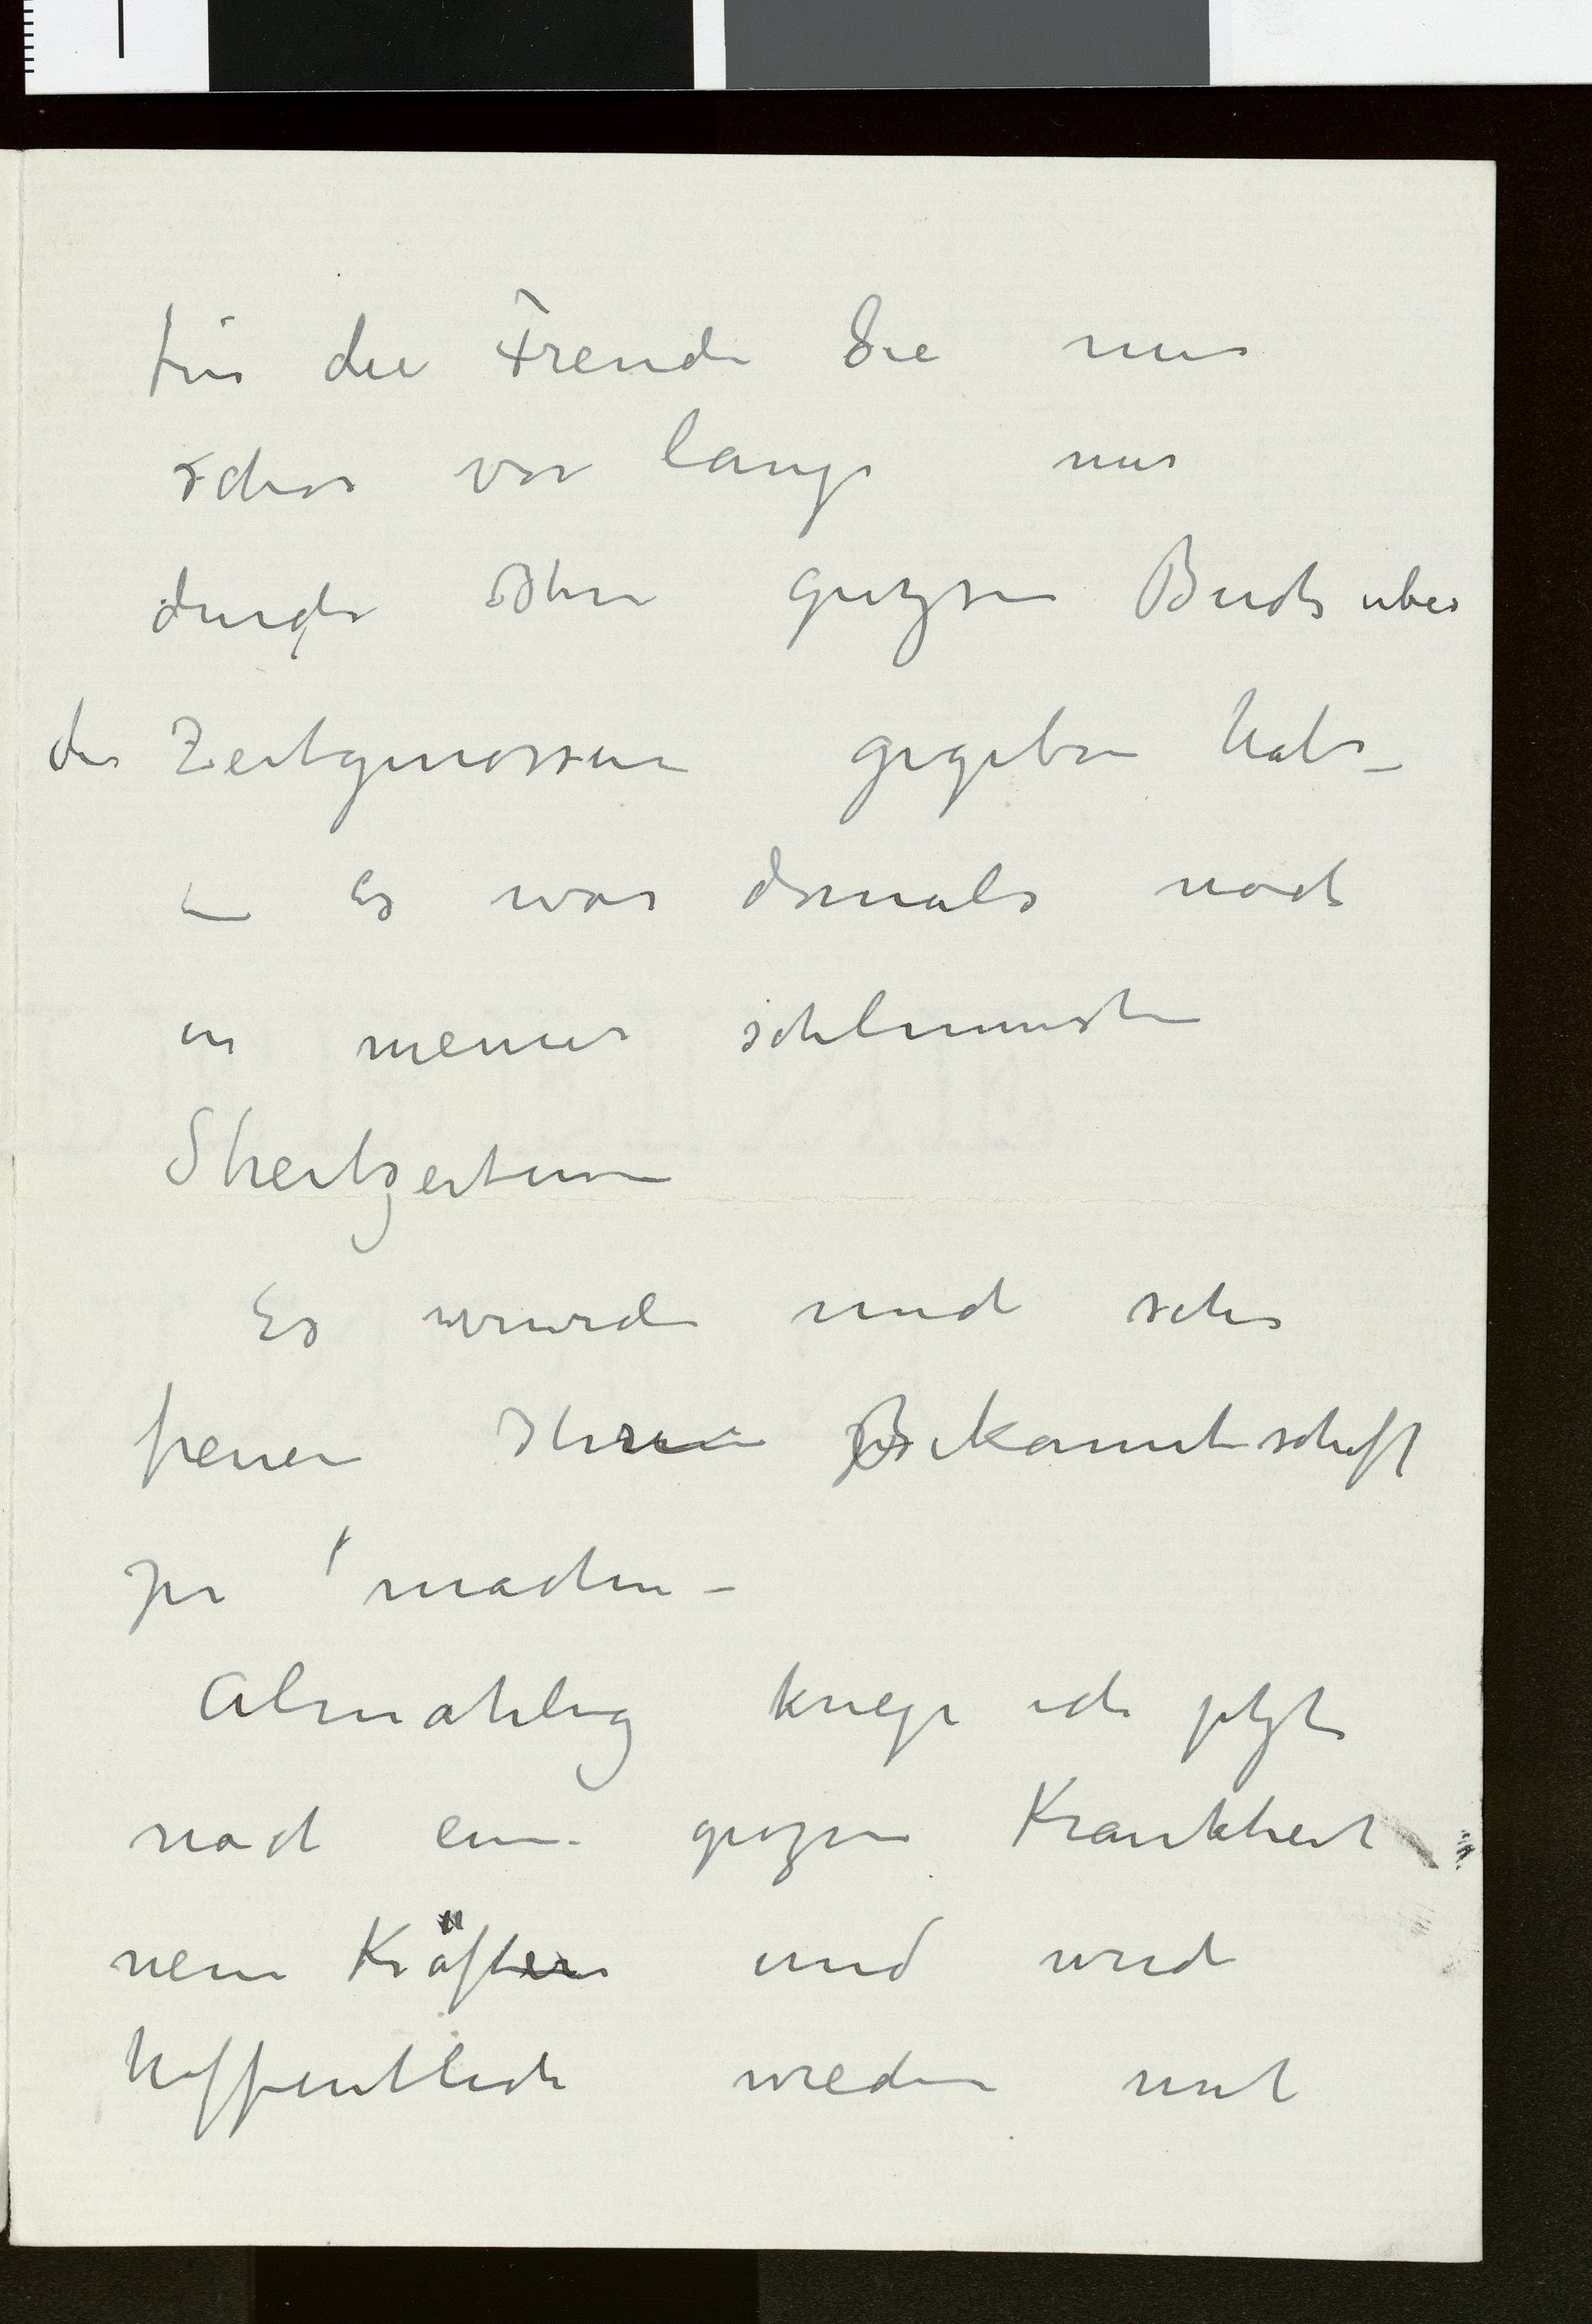 für die Freude Sie mir
schon vor lange mir
durch Ihre grozse Buch uber
die Zeitgenossen gegeben habe –
– Es war damals noch
in meiner schlimmsten
Streitzeiten
Es wurde mich sehr
freuen Ihren Bekanntschaft
zu machen –
Almahlig kriege ich jetzt
nach eine grozse Krankheit
neue Kräften und werde
hoffentlich wieder mit